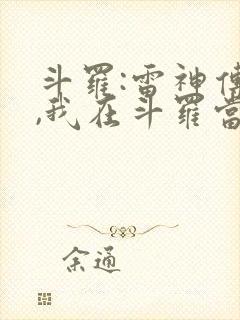 斗羅:雷神傳
,我在斗羅當
余通